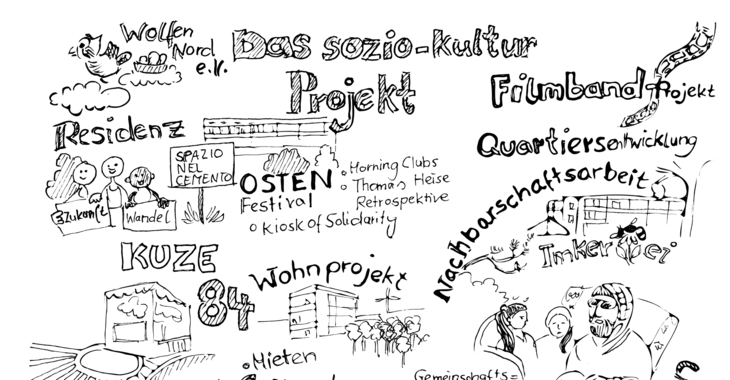 Wolfen
Nord
e.V.
Das sozio-kultur
Projekt
Filmband-Projekt
Residenz
Quartiersentwicklung
SPAZIO
NEL
CEMENTO
OSTEN
Festival
o Horning Clubs
o Thomas Heise
Retrospektive
o Kiosk of Solidarity
Zukunft
Wandel
Nachbarschaftsarbeit
Imkerei
KUZE
84
Wohnprojekt
•Mieten
Gemeinschafts=